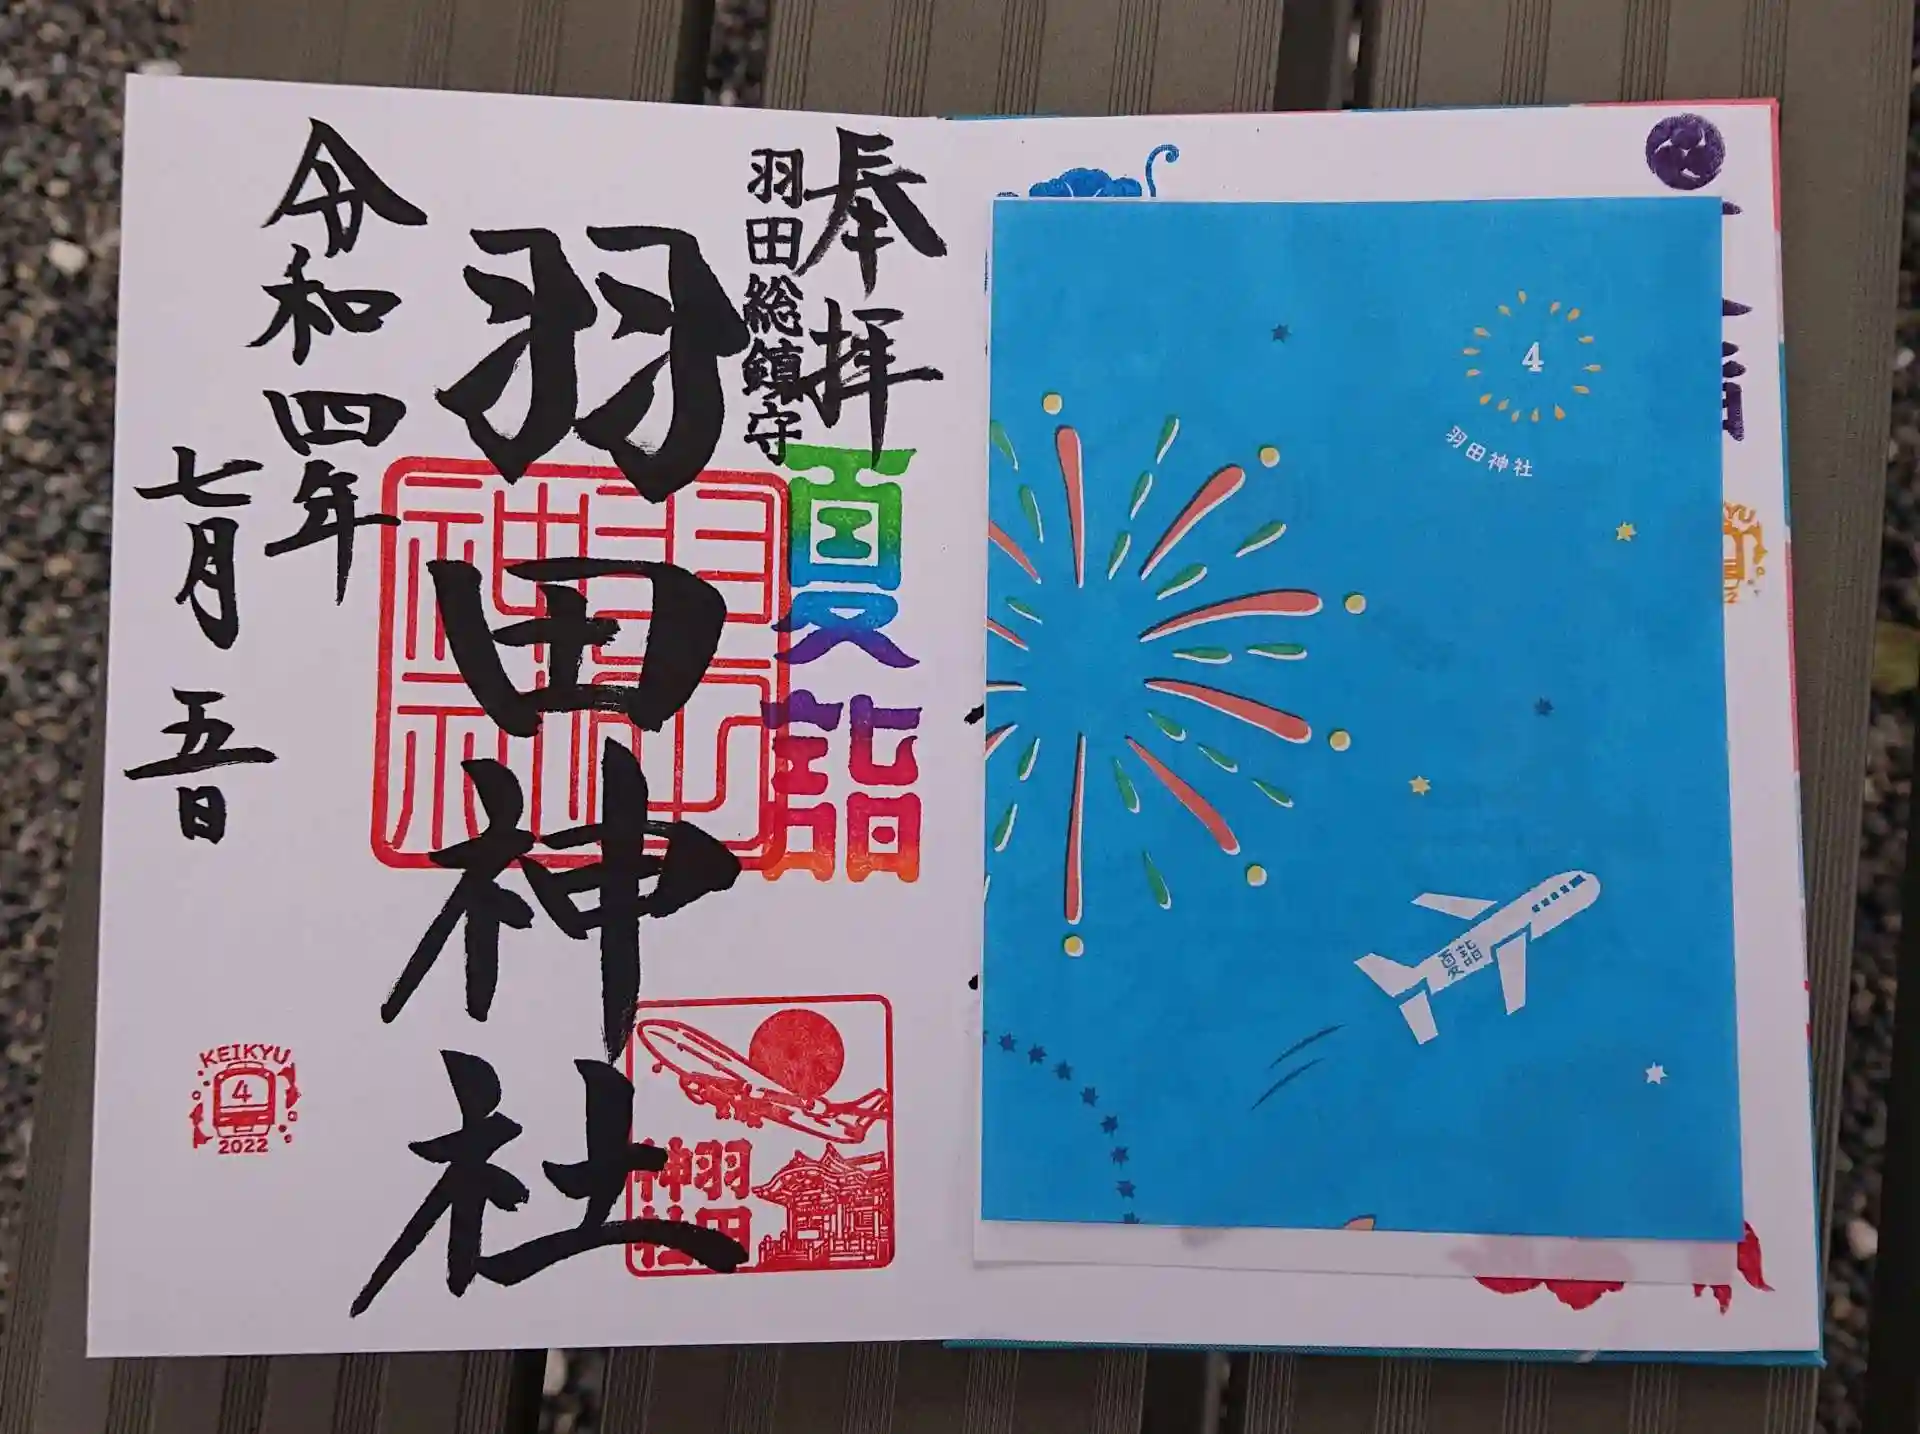 奉拝
羽田総鎮守
夏詣
羽田神社
羽田
神社
羽田
神社
令和四年
七月五日
KEIKYU
4
2022
4
羽田神社
夏詣